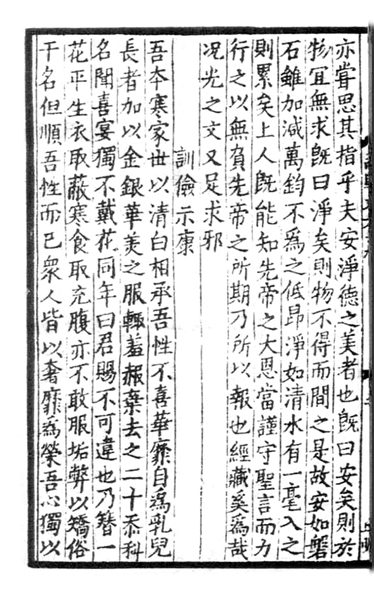 亦嘗思其指乎夫安淨德之美者也旣曰安矣則於
物宜無求旣曰淨矣則物不得而間之是故安如磐
石雖加減萬鈞不爲之低昂淨如清水有一毫入之
則累矣上人旣能知先帝之大恩當謹守聖言而力
行之以無負先帝之所期乃所以報也經藏奚爲哉
况光之文又足求邪
訓儉示康
吾本寒家世以清白相承吾性不喜華靡自爲乳兒
長者加以金銀華美之服輙羞赧棄去之二十忝科
名聞喜宴獨不戴花同年曰君賜不可違也乃簪一
花平生衣取蔽寒食取充腹亦不敢服垢弊以矯俗
干名但順吾性而已衆人皆以奢靡爲榮吾心獨以